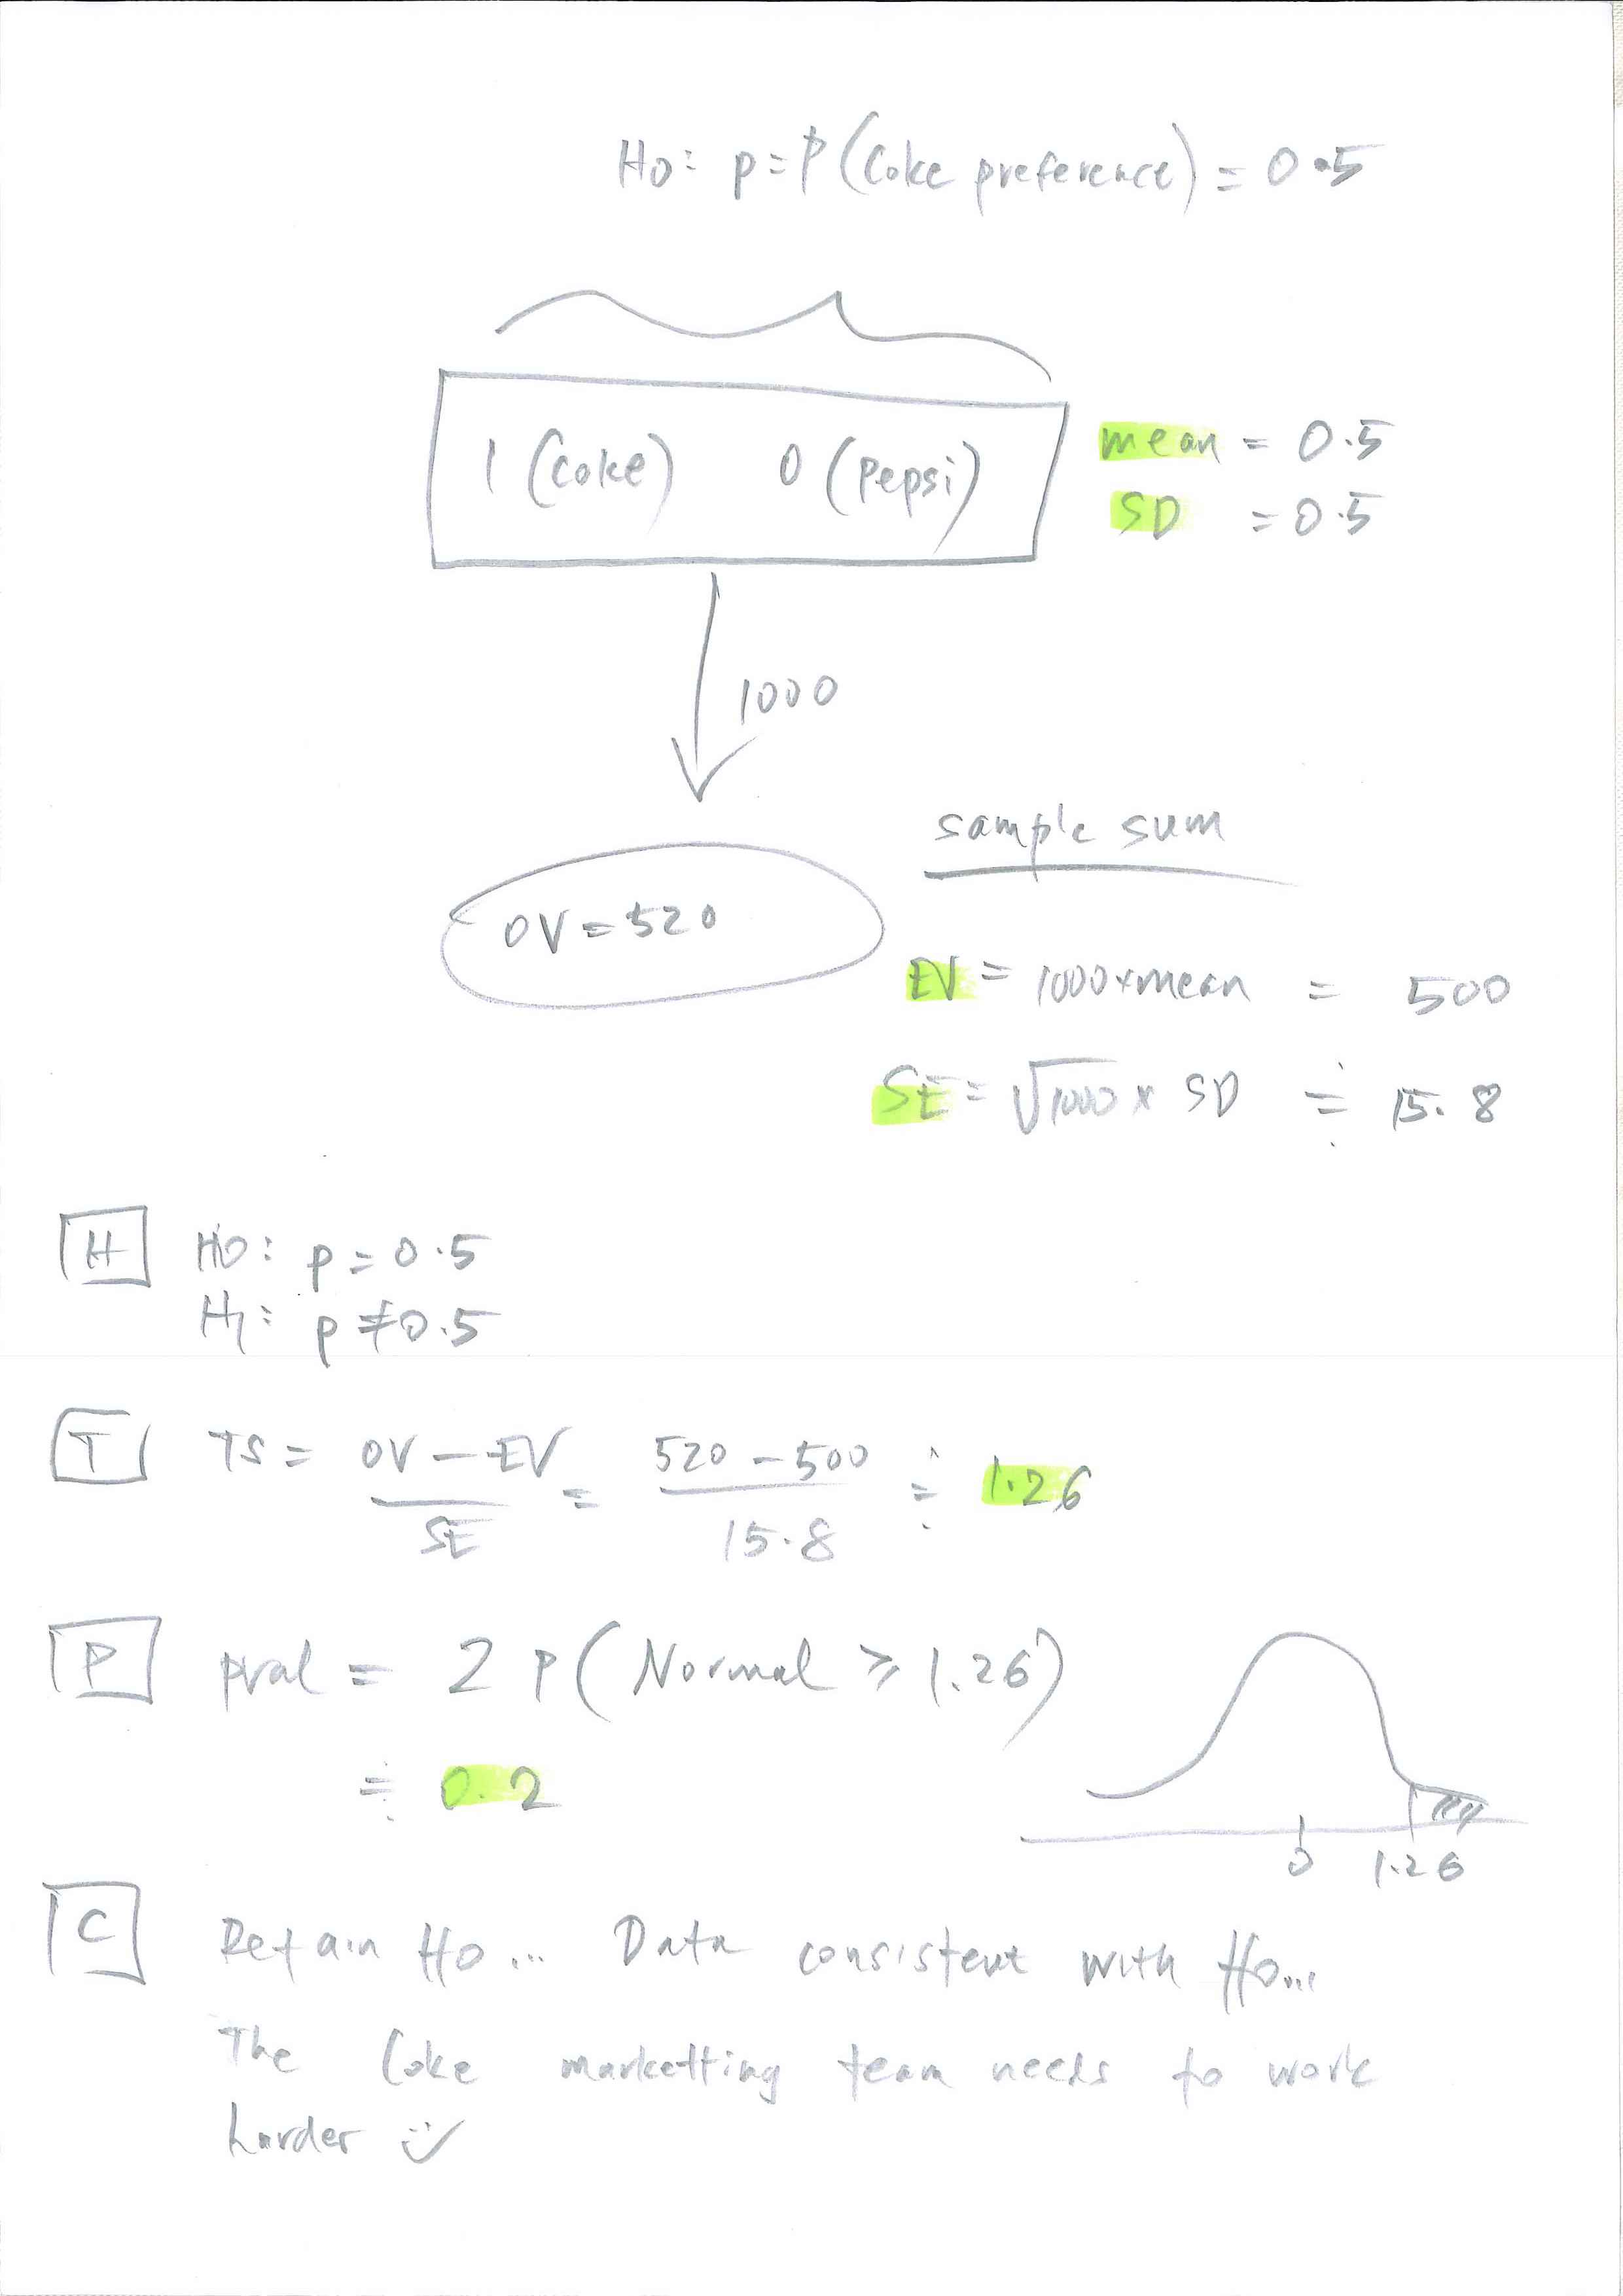 H0: p = P(Coke preference) = 0.5
1 (Coke) 0 (Pepsi)
mean = 0.5
SD = 0.5
1000
sample sum
OV = 520
EV = 1000 × mean = 500
SE = √1000 × SD ≑ 15.8
H
H0: p = 0.5
H1: p ≠ 0.5
T
TS = OV - EV / SE = 520 - 500 / 15.8 ≑ 1.26
P
pval = 2 P(Normal ⩾ 1.26)
≑ 0.2
0 1.26
C
Retain H0... Data consistent with H0...
The Coke marketting team needs to work
harder